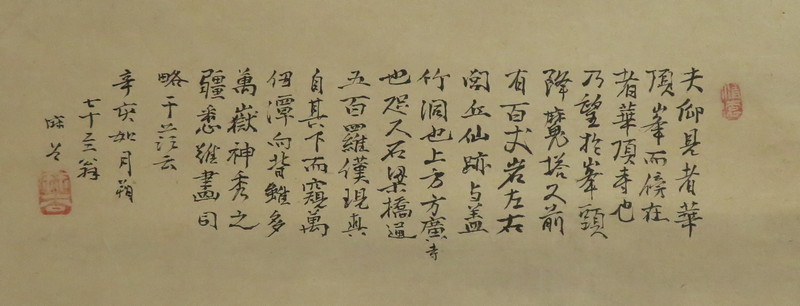 夫仰見者華
頂峯而傍在
者華頂寺也
乃望於峯頸
降魔塔又前
有百丈岩左右
閭丘仙跡与蓋
竹洞也上方方廣寺
也咫又石梁橋道
五百羅漢現真
自其下而窺萬
仞潭向背雖多
萬嶽神秀之
疆悉難盡司
略于茲云
辛亥如月朔
七十三翁